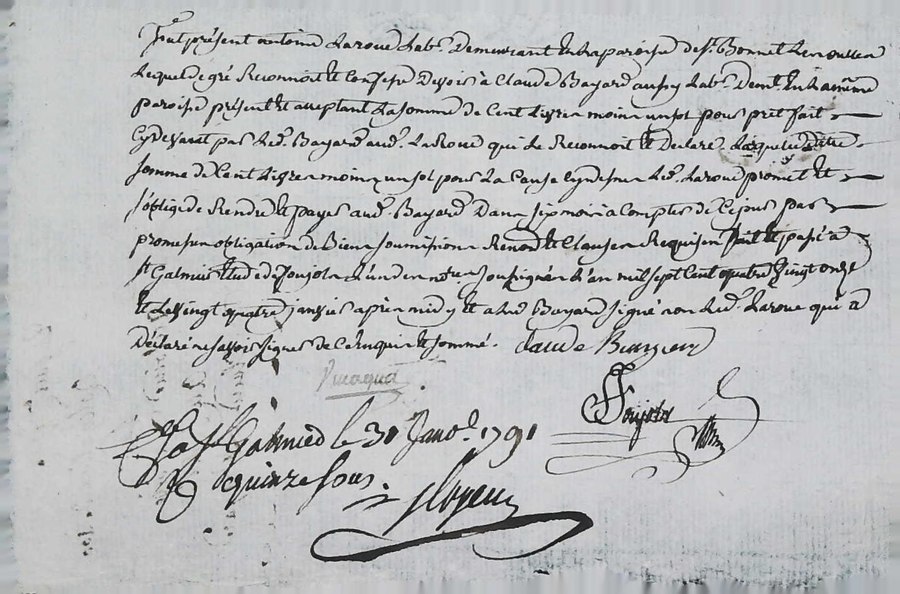 fut présent antoine Laroue Labr. Demeurant En La paroisse de St. Bonnet
Lequel de gré Reconnoit et Confesse Devoir à Claude Bayard aussy Labr. Demt. En La même
paroisse présent et acceptant La somme de Cent Livres moin un sol pour prêt fait
Cydevant par Led. Bayard aud. Laroue qui Le Reconnoit et Declare Laquelle ditte
somme de Cent Livres moin un sol pour La Cause Cydessus Led. Laroue promet et
s'oblige de Rendre et payer aud. Bayard Dans six mois à Compter de Ce jour par
promesse obligation de Biens soumissions Renond. et Clauses Requises fait et passé à
St Galmier Etude de Joujols L'un des nres. soussigné L'an mil sept Cent quatre vingt onze
et Le vingt quatre janvier après midy et a Led Bayard signé non Led. Laroue qui a
Déclaré ne savoir signer de Ce Enquis et sommé. Claude Bayard
Joujols
a St Galmier le 31 Janvr. 1791
quinze sous